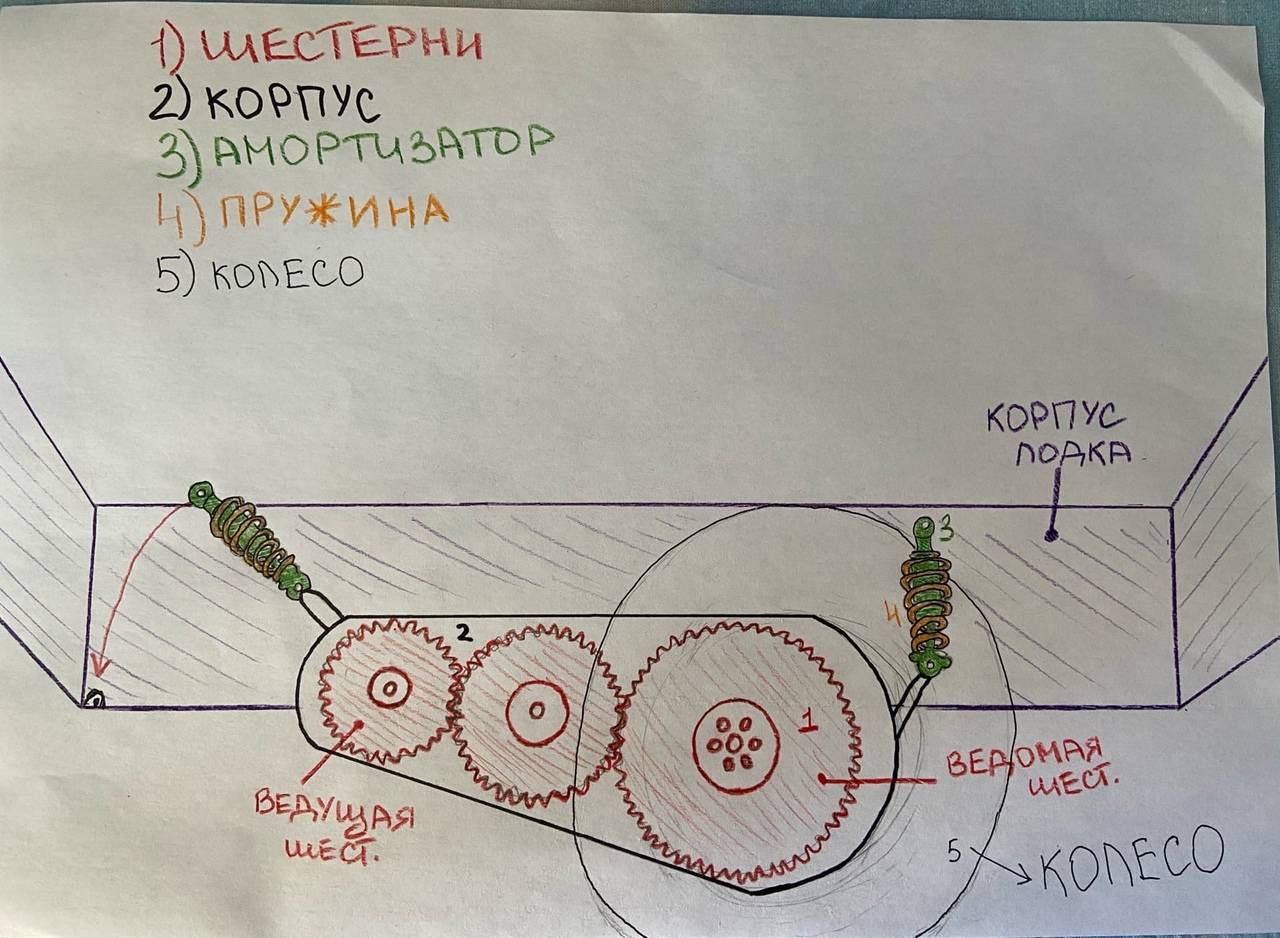 1) ШЕСТЕРНИ
2) КОРПУС
3) АМОРТИЗАТОР
4) ПРУЖИНА
5) КОЛЕСО
КОРПУС
ЛОДКА
3
4
2
1
ВЕДОМАЯ
ШЕСТ.
ВЕДУЩАЯ
ШЕСТ.
5
КОЛЕСО